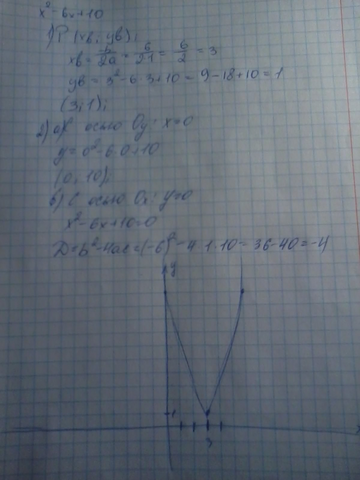 x²-6x+10
1) P (xв; yв);
xв = b/2a = 6/2·1 = 6/2 = 3
yв = 3²-6·3+10 = 9-18+10 = 1
(3; 1);
2) а) С осью Oy: x=0
y = 0²-6·0+10
(0; 10)
б) С осью Ox: y=0
x²-6x+10=0
D=b²-4ac=(-6)²-4·1·10=36-40=-4
y
1
3